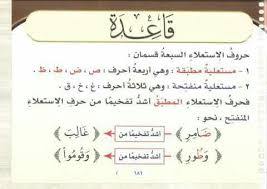 قَاعِدَة
حروف الاستعلاء السبعة قسمان :
١ - مستعلية مطبقة : وهي أربعة أحرف : ص ، ض ، ط ، ظ .
٢ - مستعلية منفتحة : وهي ثلاثة أحرف : غ ، خ ، ق .
فحرف الاستعلاء المطبق أشدُّ تفخيماً من حرف الاستعلاء
المنفتح ، نحو :
﴿ ضَامِرٍ ﴾ أشدُّ تفخيماً من ﴿ غَالِبَ ﴾
﴿ وَطُورِ ﴾ أشدُّ تفخيماً من ﴿ وَقُومُوا ﴾
١٨٦